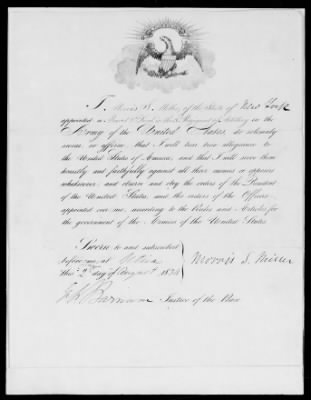 I, Morris S. Miller, of the State of New York
appointed a Brevet 2d Lieut. in the Regiment of Artillery in the
Army of the United States, do solemnly
swear, or affirm, that I will bear true allegiance to
the United States of America, and that I will serve them
honestly and faithfully against all their enemies or opposers
whatsoever; and observe and obey the orders of the President
of the United States, and the orders of the Officers
appointed over me, according to the Rules and Articles for
the government of the Armies of the United States.
Sworn to and subscribed
before me, at Utica
this 2d day of August 1834
Morris S. Miller
Justice of the Peace